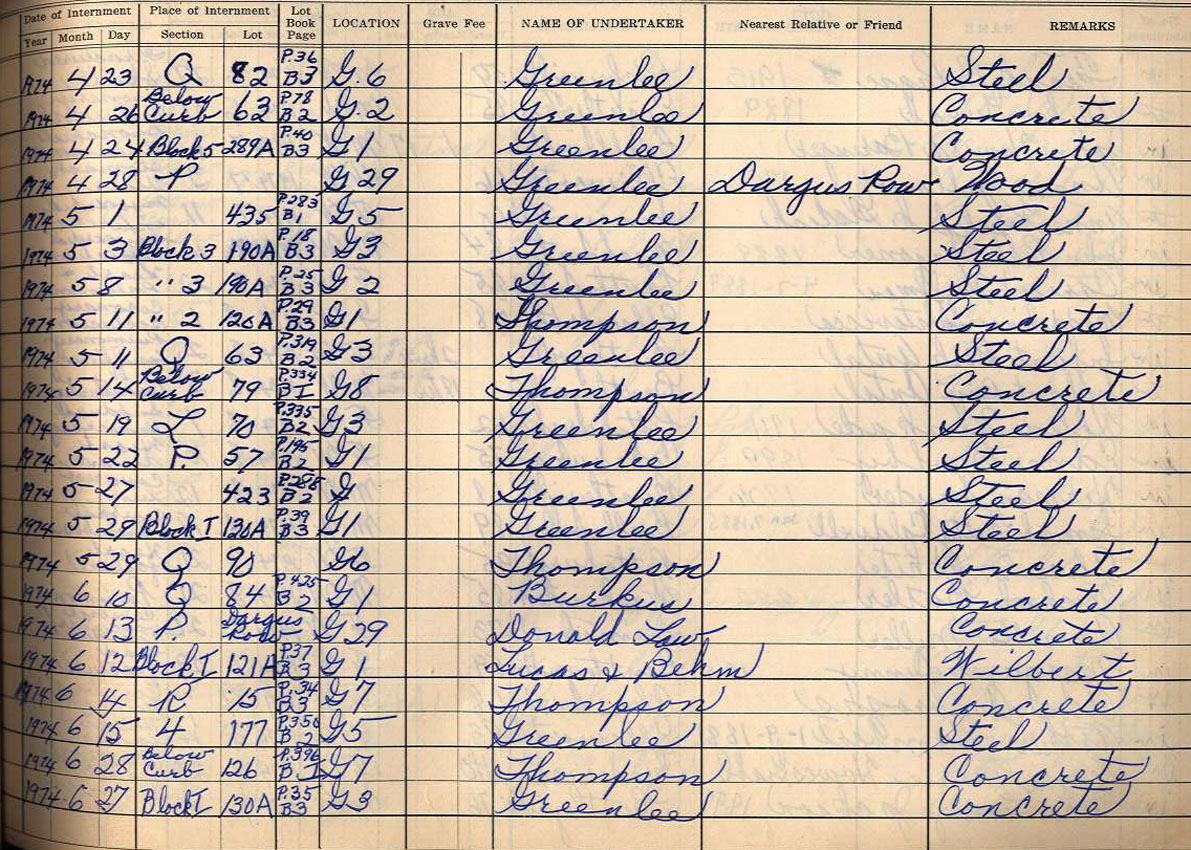 Date of Internment Place of Internment Lot Book Page LOCATION Grave Fee NAME OF UNDERTAKER Nearest Relative or Friend REMARKS
Year Month Day Section Lot
1974 4 23 Q 82 P.36 B3 G.6 Greenlee Steel
1974 4 26 Below Curb 63 P.78 B2 G.2 Greenlee Concrete
1974 4 24 Block 5 289A P.40 B3 G1 Greenlee Concrete
1974 4 28 P G 29 Greenlee Dargus Row Wood
1974 5 1 435 P.283 B1 G5 Greenlee Steel
1974 5 3 Block 3 190A P.18 B3 G3 Greenlee Steel
1974 5 8 " 3 190A P.25 B3 G2 Greenlee Steel
1974 5 11 " 2 120A P.29 B3 G1 Thompson Concrete
1974 5 11 Q 63 P.319 B2 G3 Greenlee Steel
1974 5 14 Below Curb 79 P.334 BI G8 Thompson Concrete
1974 5 19 L 70 P.335 B2 G3 Greenlee Steel
1974 5 22 P. 57 P.195 B2 G1 Greenlee Steel
1974 5 27 423 B2 G Greenlee Steel
1974 5 29 Block I 130A P.39 B3 G1 Greenlee Steel
1974 5 29 Q 90 G6 Thompson Concrete
1974 6 10 Q 84 P.425 B2 G1 Burkus Concrete
1974 6 13 P. Dargus Row G29 Donald Law Concrete
1974 6 12 Block I 121A P.37 B3 G1 Lucas & Behm Wilbert
1974 6 14 R 15 P.34 B3 G7 Thompson Concrete
1974 6 15 4 177 P.350 B2 G5 Greenlee Steel
1974 6 28 Below Curb 126 P.396 B.I G7 Thompson Concrete
1974 6 27 Block I 130A P.35 B3 G3 Greenlee Concrete